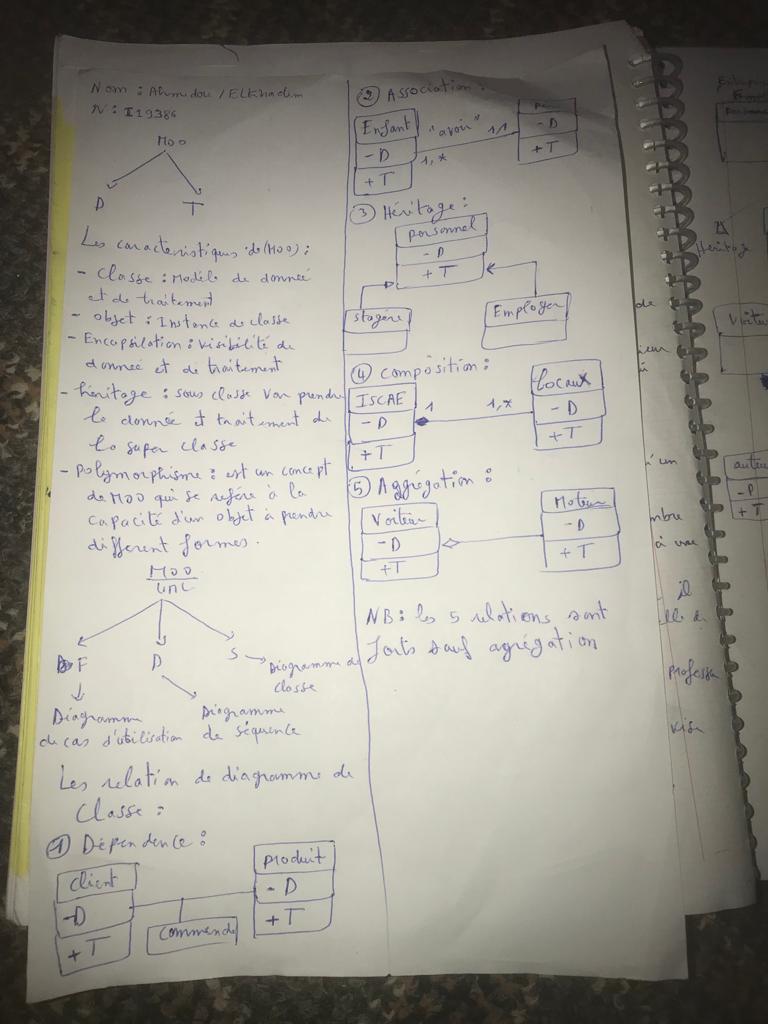 Nom : Ahmedou / ELKhadim
N : I19386
MOO
D
T
Les caracteristiques de (MOO) :
- Classe : Modèle de donneé
et de traitement
- objet : Instance de classe
- Encapsilation : visibilité de
donneé et de traitement
- héritage : sous classe van prendre
le donneé et traitement de
la super classe
- polymorphisme : est un concept
de MOO qui se refère à la
capacité d'un objet à prendre
different formes.
MOO
UML
F
D
S
Diagramme de
classe
Diagramme
de cas d'utilisation
Diagramme
de séquence
Les relation de diagramme de
Classe :
① Dépendence :
Client
- D
+ T
Commande
produit
- D
+ T
② Association :
Enfant
- D
+ T
"avoir"
1,1
1,*
- D
+ T
③ Héritage :
personnel
- D
+ T
stagère
Employer
④ composition :
ISCAE
- D
+ T
1
1,*
locaux
- D
+ T
⑤ Aggrégation :
Voiteur
- D
+ T
Moteur
- D
+ T
NB : les 5 relations sont
forts sauf agrégation
Héritage
Voiteu
auteu
- D
+ T
de
ieur
à
i'un
mbre
à une
il
elle de
professe
vise